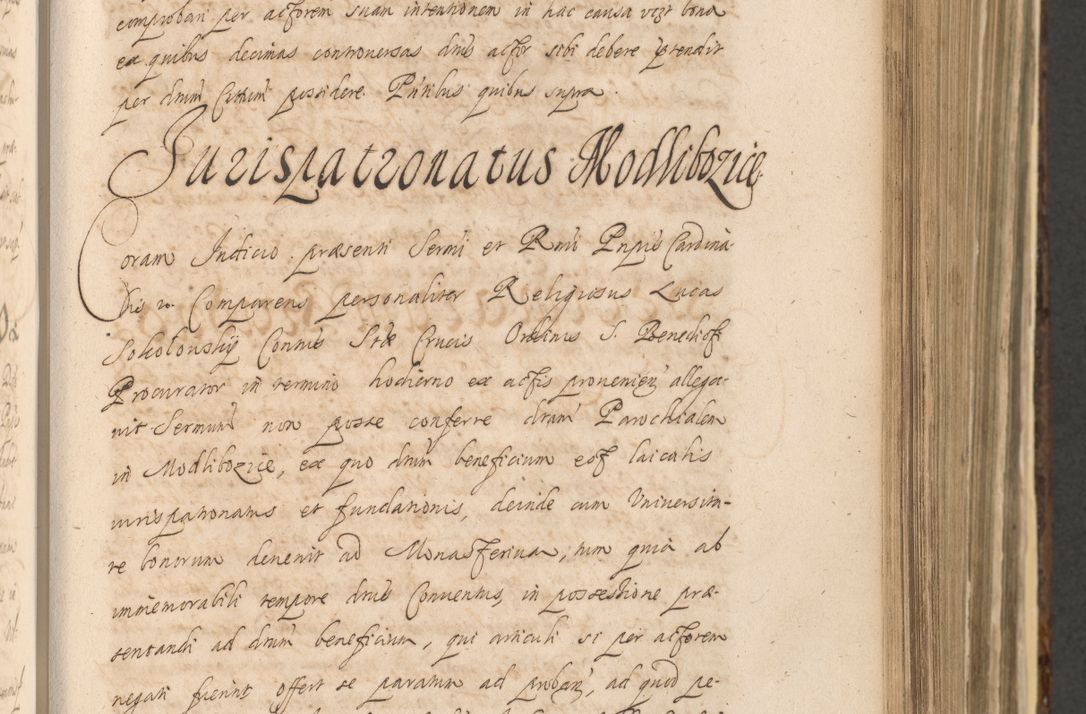 comprobari per actorem suam intentionem in hac causa vigt bona
ex quibus decimas controversas dnus actor sibi debere prtendit
per dnum Citatum possidere. Pntibus quibus supra.
Jurispatronatus Modlibozice
Coram Judicio præsenti Sermi et Rmi Pnpis Cardina
lis Comparens personaliter Religiosus Lucas
Sokolowskÿ Contus Stæ Crucis Ordinis S. Benedict
Procurator in termino hodierno ex actis proveniens allega
uit Sermum non posse conferre dtam Parochialem
in Modlibozice, ex quo dnum beneficium est laicalis
iurispatronatus et fundationis, deinde cum Vniversita-
te bonorum devenit ad Monasterium, tum quia ab
immemorabili tempore dnus Conventus, in possessione præ-
sentandi ad dnum beneficium, qui articuli si per actorem
negati fuerint offert se paratum ad proband, ad quod pe-